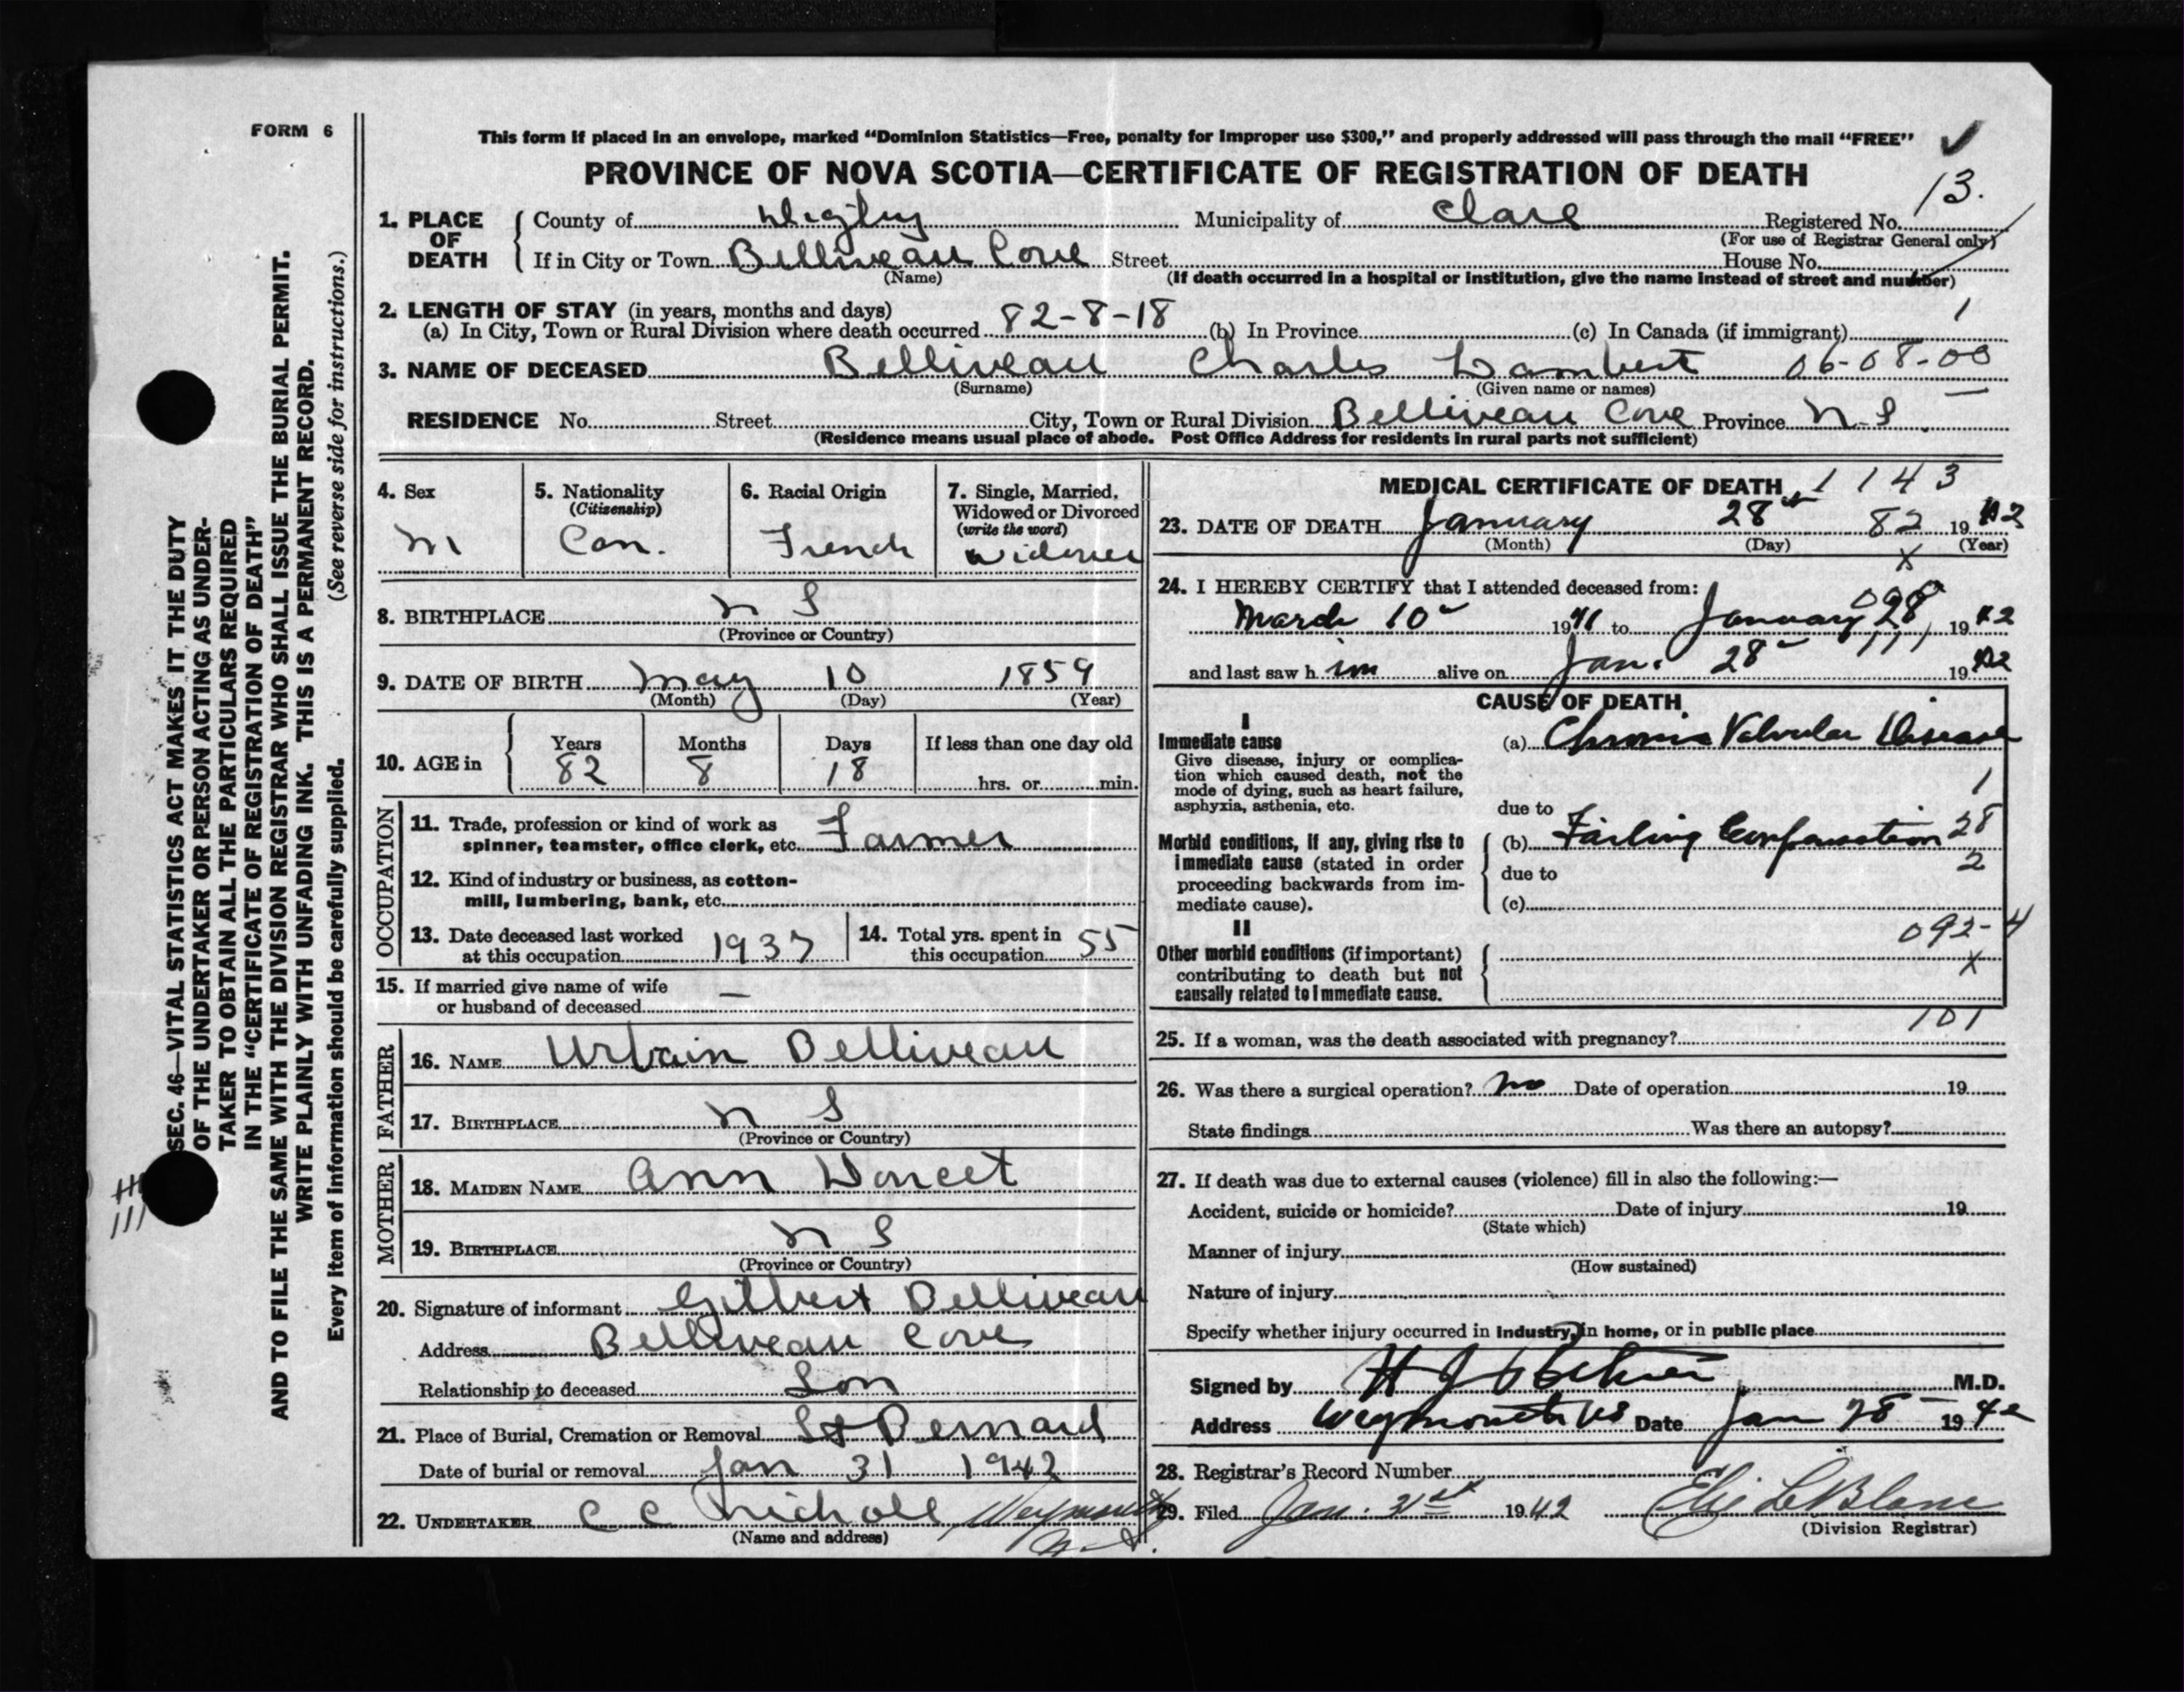 FORM 6
This form if placed in an envelope, marked “Dominion Statistics—Free, penalty for improper use $300,” and properly addressed will pass through the mail “FREE”
PROVINCE OF NOVA SCOTIA—CERTIFICATE OF REGISTRATION OF DEATH
13.
1. PLACE OF DEATH County of Digby Municipality of Clare Registered No.
(For use of Registrar General only)
If in City or Town Belliveau Cove Street House No.
(Name) (If death occurred in a hospital or institution, give the name instead of street and number)
2. LENGTH OF STAY (in years, months and days)
(a) In City, Town or Rural Division where death occurred 82-8-18 (b) In Province (c) In Canada (if immigrant) 1
3. NAME OF DECEASED Belliveau Charles Lambert 06-08-00
(Surname) (Given name or names)
RESIDENCE No. Street City, Town or Rural Division Belliveau Cove Province N.S.
(Residence means usual place of abode. Post Office Address for residents in rural parts not sufficient)
4. Sex
M
5. Nationality
(Citizenship)
Can.
6. Racial Origin
French
7. Single, Married, Widowed or Divorced
(write the word)
Widower
8. BIRTHPLACE N S
(Province or Country)
9. DATE OF BIRTH May 10 1859
(Month) (Day) (Year)
10. AGE in Years Months Days If less than one day old
82 8 18 hrs. or min.
OCCUPATION
11. Trade, profession or kind of work as
spinner, teamster, office clerk, etc. Farmer
12. Kind of industry or business, as cotton-
mill, lumbering, bank, etc.
13. Date deceased last worked
at this occupation 1937
14. Total yrs. spent in
this occupation 55
15. If married give name of wife
or husband of deceased —
FATHER
16. NAME Urbain Belliveau
17. BIRTHPLACE N S
(Province or Country)
MOTHER
18. MAIDEN NAME Ann Doucet
19. BIRTHPLACE N S
(Province or Country)
20. Signature of informant Gilbert Belliveau
Address Belliveau Cove
Relationship to deceased Son
21. Place of Burial, Cremation or Removal St Bernard
Date of burial or removal Jan 31 1942
22. UNDERTAKER C C Nicholl Weymouth
N.S.
(Name and address)
MEDICAL CERTIFICATE OF DEATH 1143
23. DATE OF DEATH January 28 82 1942
(Month) (Day) (Year)
X
24. I HEREBY CERTIFY that I attended deceased from:
March 10 1941 to January 28 1942
and last saw him alive on Jan. 28 1942
CAUSE OF DEATH
I
Immediate cause (a) Chronic Valvular Disease
Give disease, injury or complica-
tion which caused death, not the
mode of dying, such as heart failure,
asphyxia, asthenia, etc.
1
due to
Morbid conditions, if any, giving rise to
immediate cause (stated in order
proceeding backwards from im-
mediate cause).
(b) Failing Compensation 28
due to 2
(c)
II
092-4
Other morbid conditions (if important)
contributing to death but not
causally related to immediate cause.
X
101
25. If a woman, was the death associated with pregnancy?
26. Was there a surgical operation? no Date of operation 19
State findings Was there an autopsy?
27. If death was due to external causes (violence) fill in also the following:—
Accident, suicide or homicide? Date of injury 19
(State which)
Manner of injury
(How sustained)
Nature of injury
Specify whether injury occurred in industry, in home, or in public place
Signed by H J M.D.
Address Weymouth NS Date Jan 28 1942
28. Registrar's Record Number
29. Filed Jan. 31st 1942 Elie LeBlanc
(Division Registrar)
SEC. 46—VITAL STATISTICS ACT MAKES IT THE DUTY
OF THE UNDERTAKER OR PERSON ACTING AS UNDER-
TAKER TO OBTAIN ALL THE PARTICULARS REQUIRED
IN THE “CERTIFICATE OF REGISTRATION OF DEATH”
AND TO FILE THE SAME WITH THE DIVISION REGISTRAR WHO SHALL ISSUE THE BURIAL PERMIT.
WRITE PLAINLY WITH UNFADING INK. THIS IS A PERMANENT RECORD.
Every item of information should be carefully supplied. (See reverse side for instructions.)
111